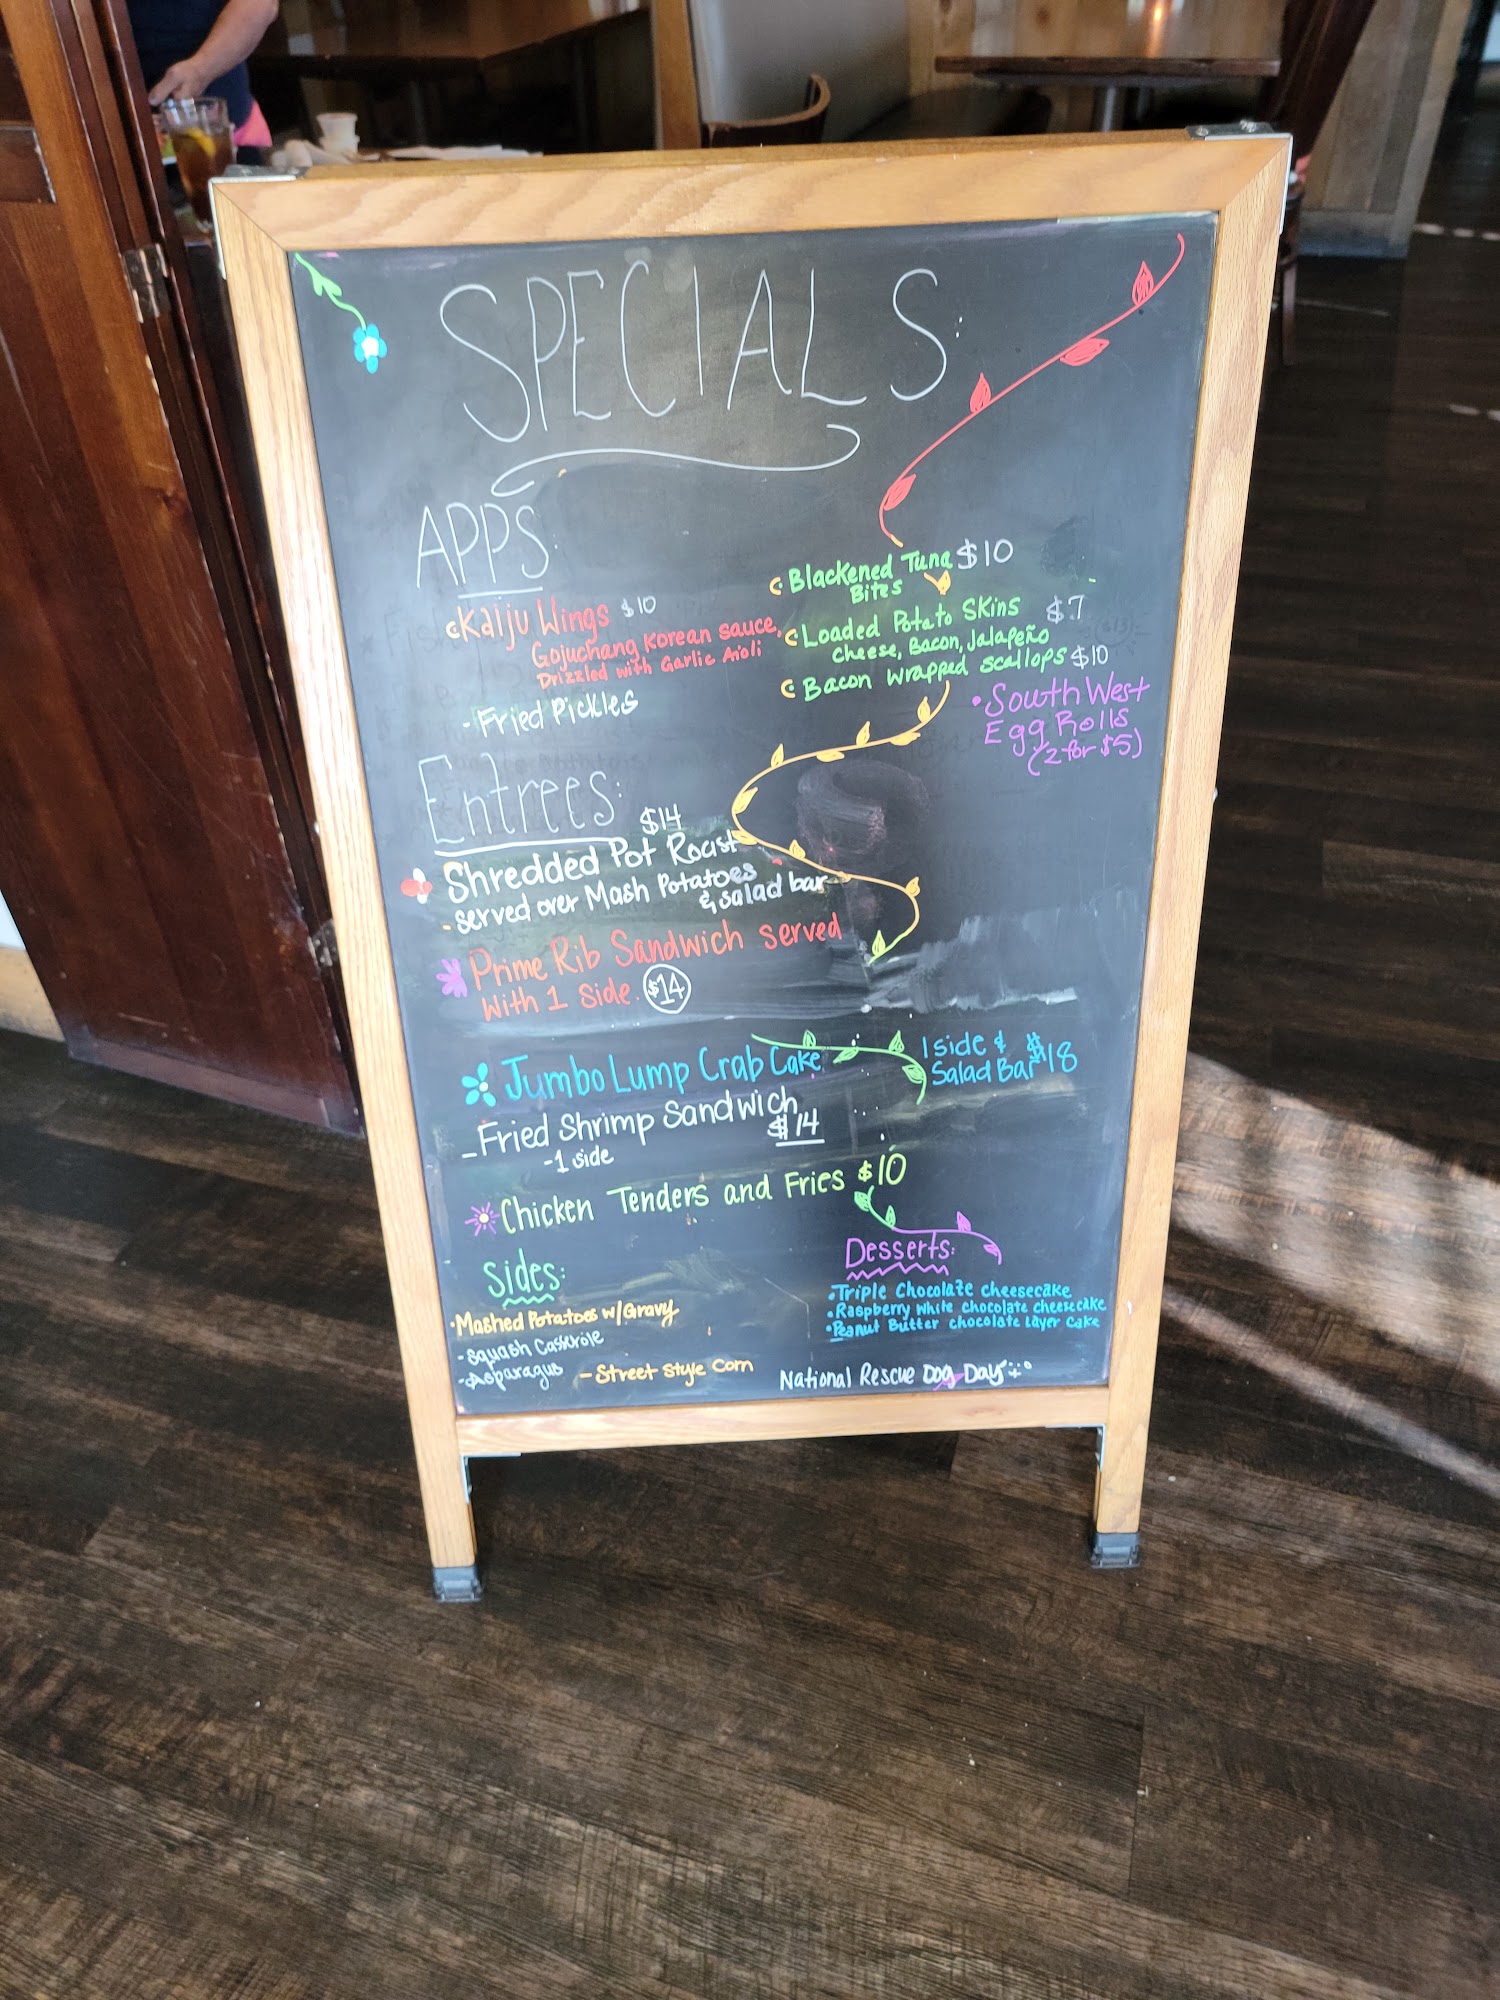 SPECIALS:
APPS:
Kaiju Wings $10
Gojuchang Korean sauce,
Drizzled with Garlic Aioli
- Fried Pickles
Blackened Tuna $10
Bites
Loaded Potato Skins $7
Cheese, Bacon, Jalapeño
Bacon wrapped scallops $10
• SouthWest
Egg Rolls
(2 for $5)
Entrees:
$14
Shredded Pot Roast
- served over Mash Potatoes
& salad bar
Prime Rib Sandwich served
with 1 side. $14
Jumbo Lump Crab Cake
1 side &
Salad Bar $18
- Fried Shrimp Sandwich
$14
- 1 side
Chicken Tenders and Fries $10
Sides:
• Mashed Potatoes w/Gravy
- Squash Casserole
- Asparagus
- Street Style Corn
Desserts:
• Triple Chocolate cheesecake
• Raspberry white chocolate cheesecake
• Peanut Butter chocolate Layer Cake
National Rescue Dog Day